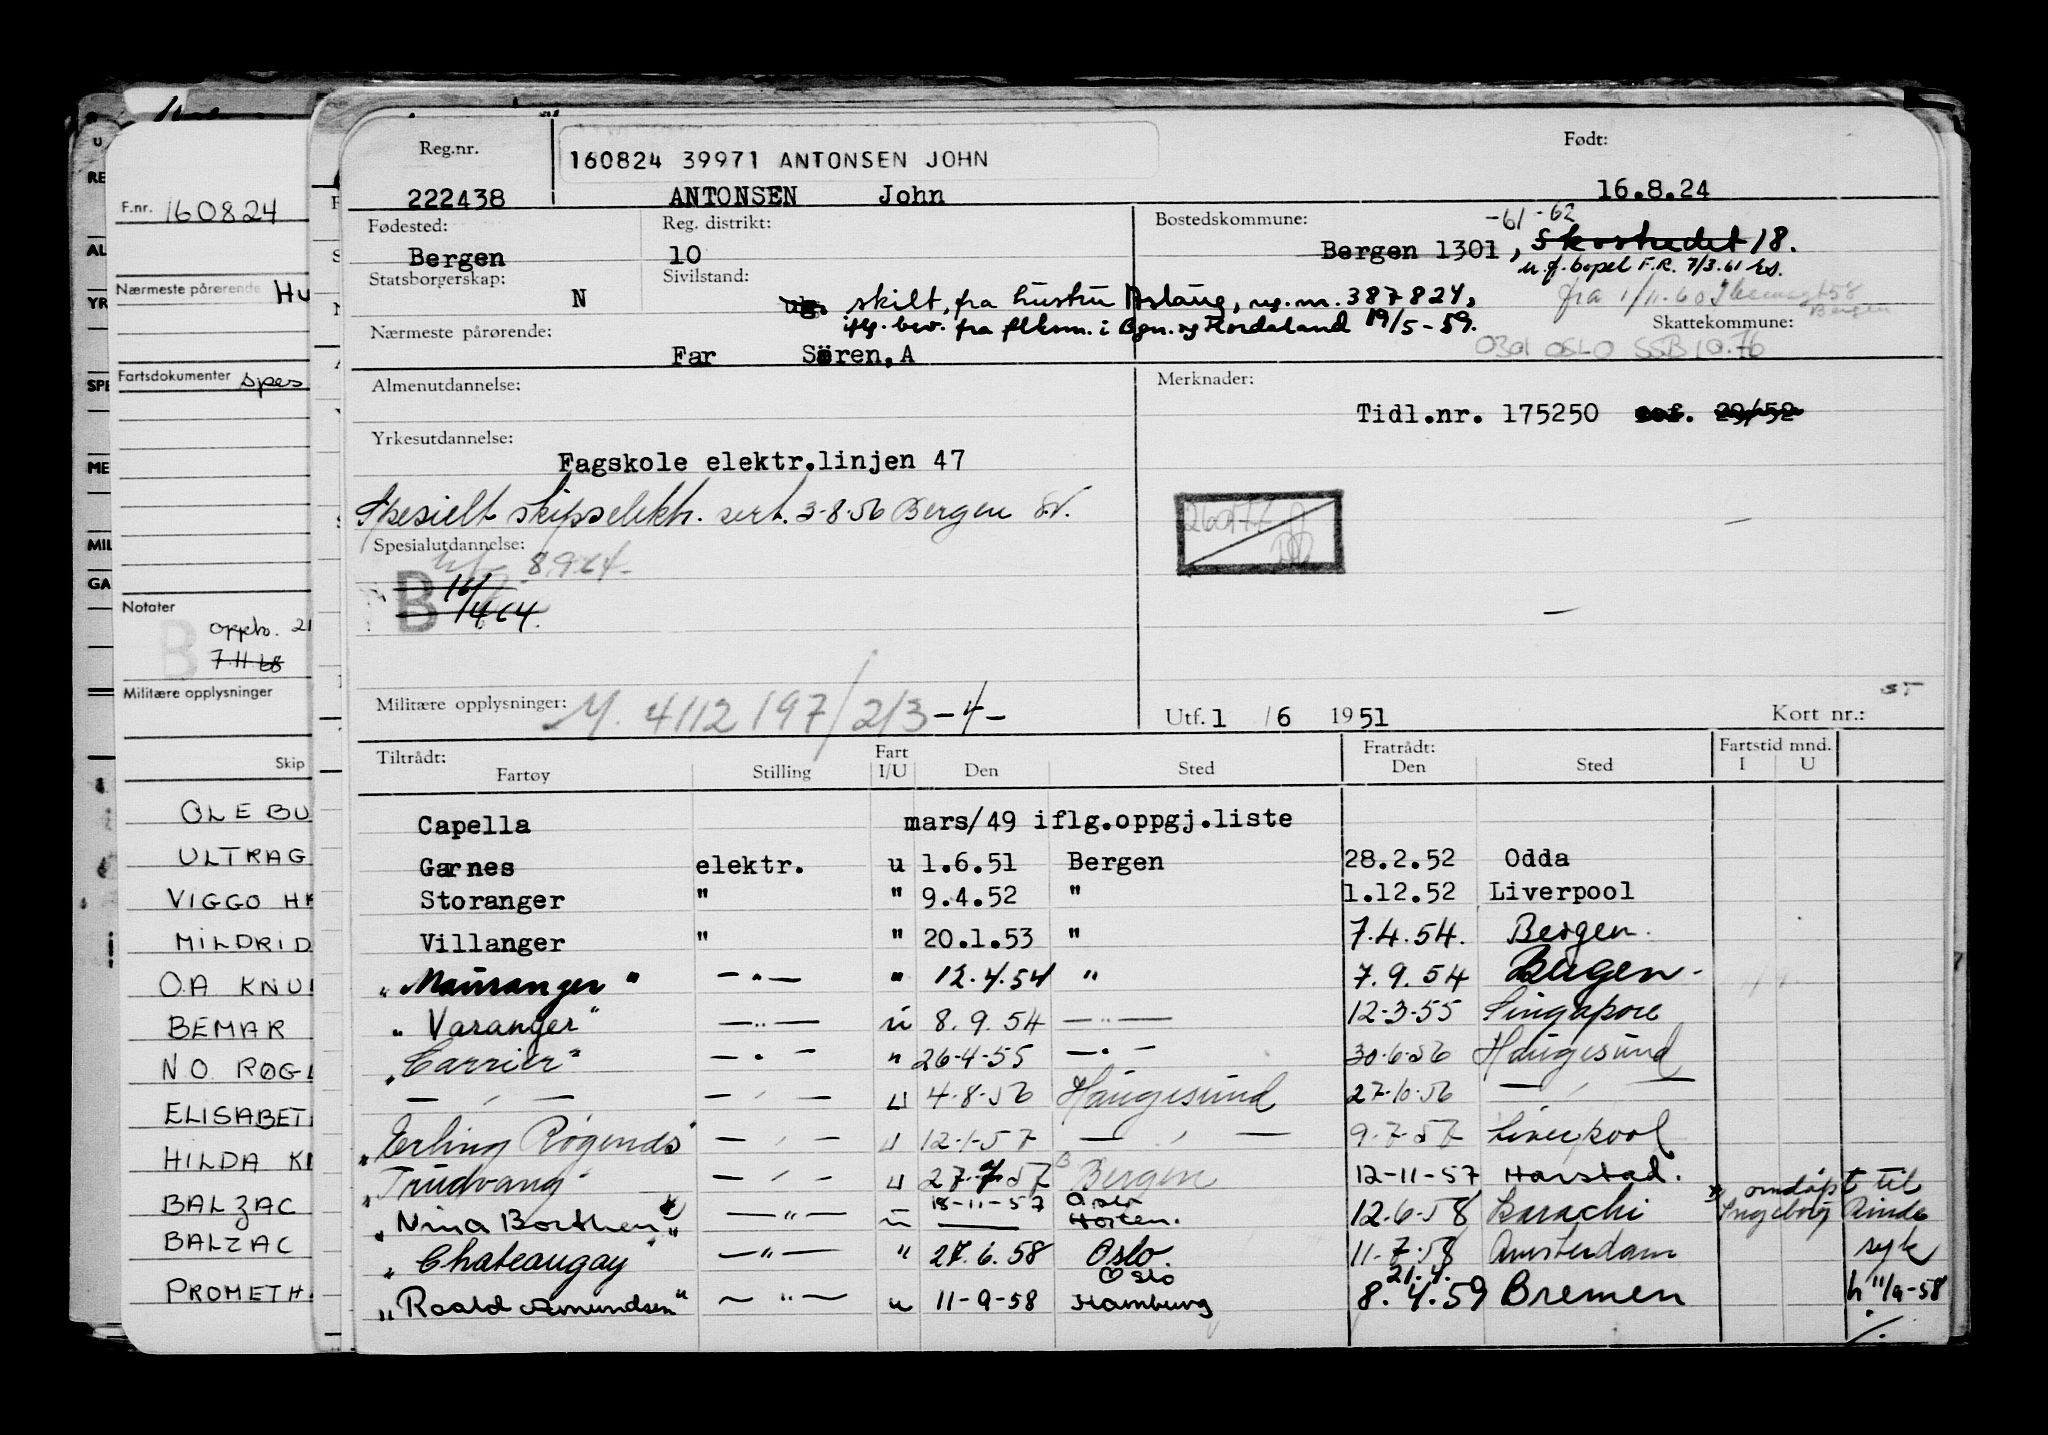 Reg.nr.
160824 39971 ANTONSEN JOHN
Født:
222438 ANTONSEN John 16.8.24
F.nr. 160824
Fødested: Reg. distrikt: Bostedskommune: -61 -62
Bergen 10 Bergen 1301, Skostredet 18.
u.f. bopel F.R. 7/3.61
Statsborgerskap: Sivilstand:
N ug. skilt, fra hustru Aslaug, reg.nr. 387824,
fra 1/11.60
Bergen
iflg. bev. fra flksm. i Bgn. og Hordaland 19/5-59.
Nærmeste pårørende: Skattekommune:
Far Sören, A 0301 OSLO SSB 10.76
Nærmeste pårørende Hu
Almenutdannelse: Merknader:
Fartsdokumenter spes
Tidl.nr. 175250
Yrkesutdannelse:
Fagskole elektr.linjen 47
Spesielt skipselektr. sert. 3-8-56 Bergen
Spesialutdannelse:
8.9.64
B 14.64.
Notater
B oppb. 21
7.11.68
Militære opplysninger
Militære opplysninger: M. 4112 197/2/3-4- Utf. 1 /6 1951 Kort nr.:
Skip
Tiltrådt: Fart Fratrådt: Fartstid mnd.
Fartøy Stilling I/U Den Sted Den Sted I U
Capella mars/49 iflg.oppgj.liste
Garnes elektr. u 1.6.51 Bergen 28.2.52 Odda
Storanger " " 9.4.52 " 1.12.52 Liverpool
Villanger " " 20.1.53 " 7.4.54. Bergen.
"Mauranger" —"— " 12.4.54 " 7.9.54 Bergen -
"Varanger" —"— u 8.9.54 —"— 12-3-55 Singapore
"Carrier" —"— " 26-4-55 —"— 30-6-56 Haugesund
— ' — — ' — u 4-8-56 Haugesund 27-10-56 — ' —
"Erling Røgends" — ' — u 12-1-57 — ' — 9-7-57 Liverpool
"Trudvang" — ' — u 27-7-57 Bergen 12-11-57 Harstad.
18-11-57 Oslo
"Nina Borthen" —"— u — Horten. 12-6-58 Karachi omdøpt til
Ingeborg
"Chateaugay" —"— " 27.6.58 Oslo. 11-7-58 Amsterdam syk
Oslo 21.4.
"Roald Amundsen" —"— u 11-9-58 Hamburg 8.4.59 Bremen h 11/9-58
OLE BU
ULTRAG
VIGGO H
MILDRID
O.A KNU
BEMAR
N.O. RØG
ELISABET
HILDA K
BALZAC
BALZAC
PROMETH
RE
AL
YR
SPE
ME
MIL
GA